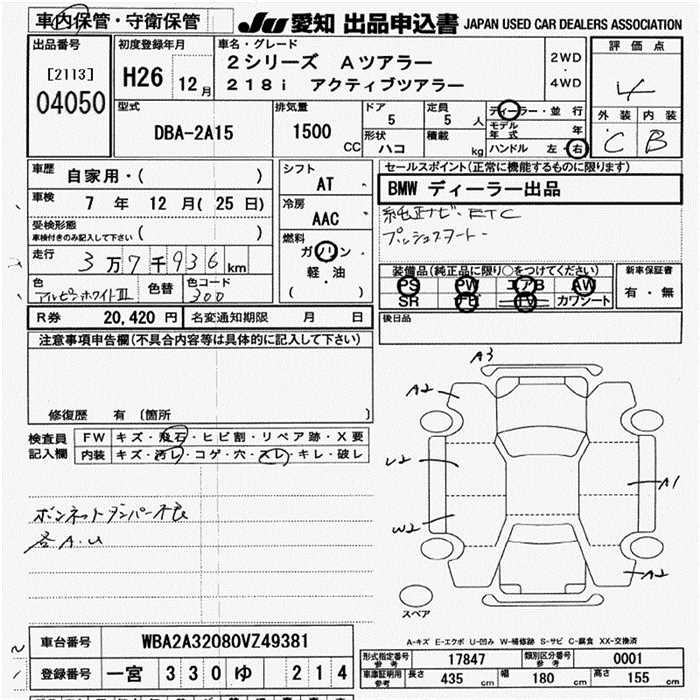 車内保管・守衛保管
JU 愛知 出品申込書 JAPAN USED CAR DEALERS ASSOCIATION
出品番号
[2113]
04050
初度登録年月
H26 12月
車名・グレード
2シリーズ Aツアラー
218i アクティブツアラー
2WD
・
4WD
評価点
4
外装 内装
C B
型式
DBA-2A15
排気量
1500 CC
ドア
5
定員
5人
形状
ハコ
積載
kg
ディーラー・並行
モデル年式 年
ハンドル 左・右
車歴
自家用・( )
車検
7年 12月(25日)
受検形態
車検付きのみ記入して下さい ( )
走行
3万7千936km
色
アルピンホワイトⅢ
色替
色コード
300
シフト
AT
冷房
AAC
燃料
ガソリン
軽・油
( )
セールスポイント(正常に機能するものに限ります)
BMW ディーラー出品
純正ナビ・ETC
プッシュスタート
装備品(純正品に限り○をつけてください)
PS PW エアB AW
SR TV カワシート
新車保証書
有・無
R券 20,420円 名変通知期限 月 日
後日品
注意事項申告欄(不具合内容等は具体的に記入して下さい)
修復歴 有(箇所 )
検査員
記入欄
FW キズ・飛石・ヒビ割・リペア跡・X要
内装 キズ・汚レ・コゲ・穴・スレ・キレ・破レ
ボンネットダンパー不良
各A.U
A3
A2
U2
W2
A1
A2
スペア
A-キズ E-エクボ U-凹み W-補修跡 S-サビ C-腐食 XX-交換済
車台番号 WBA2A32080VZ49381
登録番号 一宮 330 ゆ 214
型式指定番号
参考
17847
類別区分番号
参考
0001
車庫証明用
参考
長さ 435cm 幅 180cm 高さ 155cm